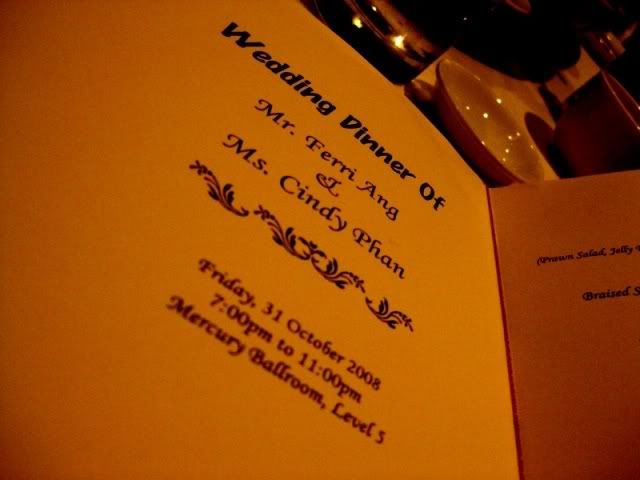 Wedding Dinner Of
Mr. Ferri Ang
&
Ms. Cindy Phan
Friday, 31 October 2008
7:00pm to 11:00pm
Mercury Ballroom, Level 5
(Prawn Salad, Jelly
Braised